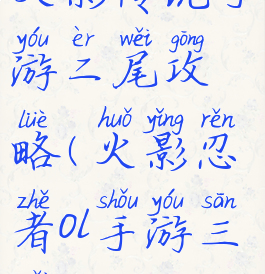 yóu èr wěi gōng
游二尾攻
lüè huǒ yǐng rěn
略(火影忍
zhě shǒu yóu sān
者ol手游三